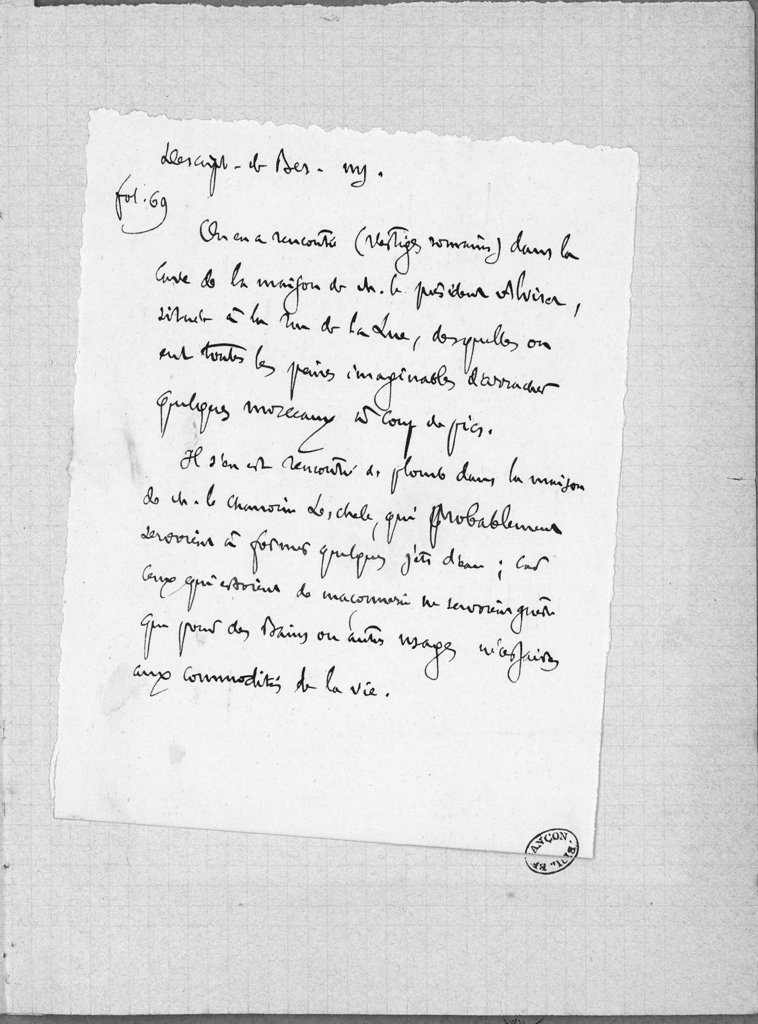 Descript. de Bes. ms.
fol. 69
On en a rencontré (vestiges romains) dans la
cave de la maison de M. le président Alviset,
située à la rue de la Lue, desquelles on
eut toutes les peines imaginables d'arracher
quelques morceaux à coup de pics.
Il s'en est rencontré de plomb dans la maison
de M. le chanoine qui probablement
servoient à former quelques jets d'eau ; car
ceux qui estoient de maçonnerie ne servoient guère
que pour des Bains ou autres usages nécessaires
aux commodités de la vie.
BESANÇON. BIBL.